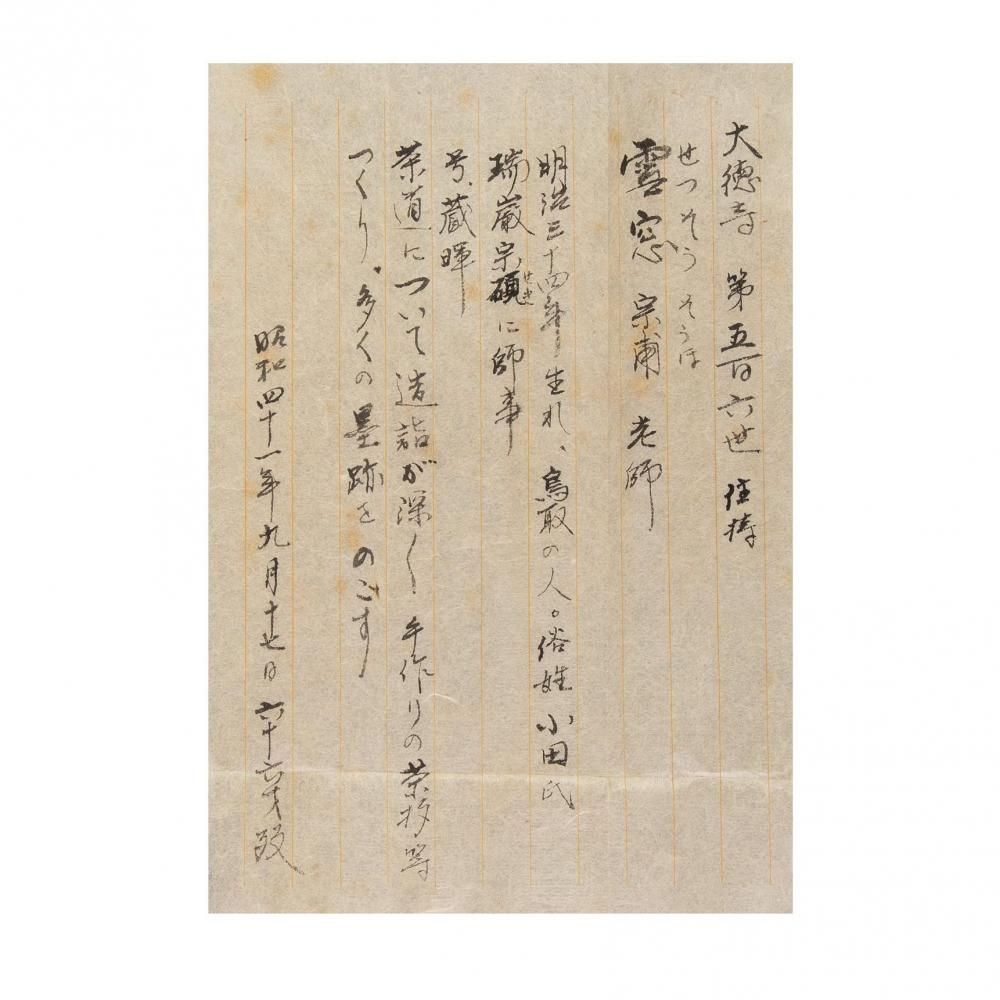 大徳寺 第五百六世 住持
せつそう そうほ
雪窓 宗甫 老師
明治三十四年生れ、鳥取の人。俗姓小田氏
瑞巌宗碩に師事
せき
号、蔵暉
茶道について造詣が深く 手作りの茶杓等
つくり、多くの墨跡をのこす
昭和四十一年九月十七日 六十六才歿